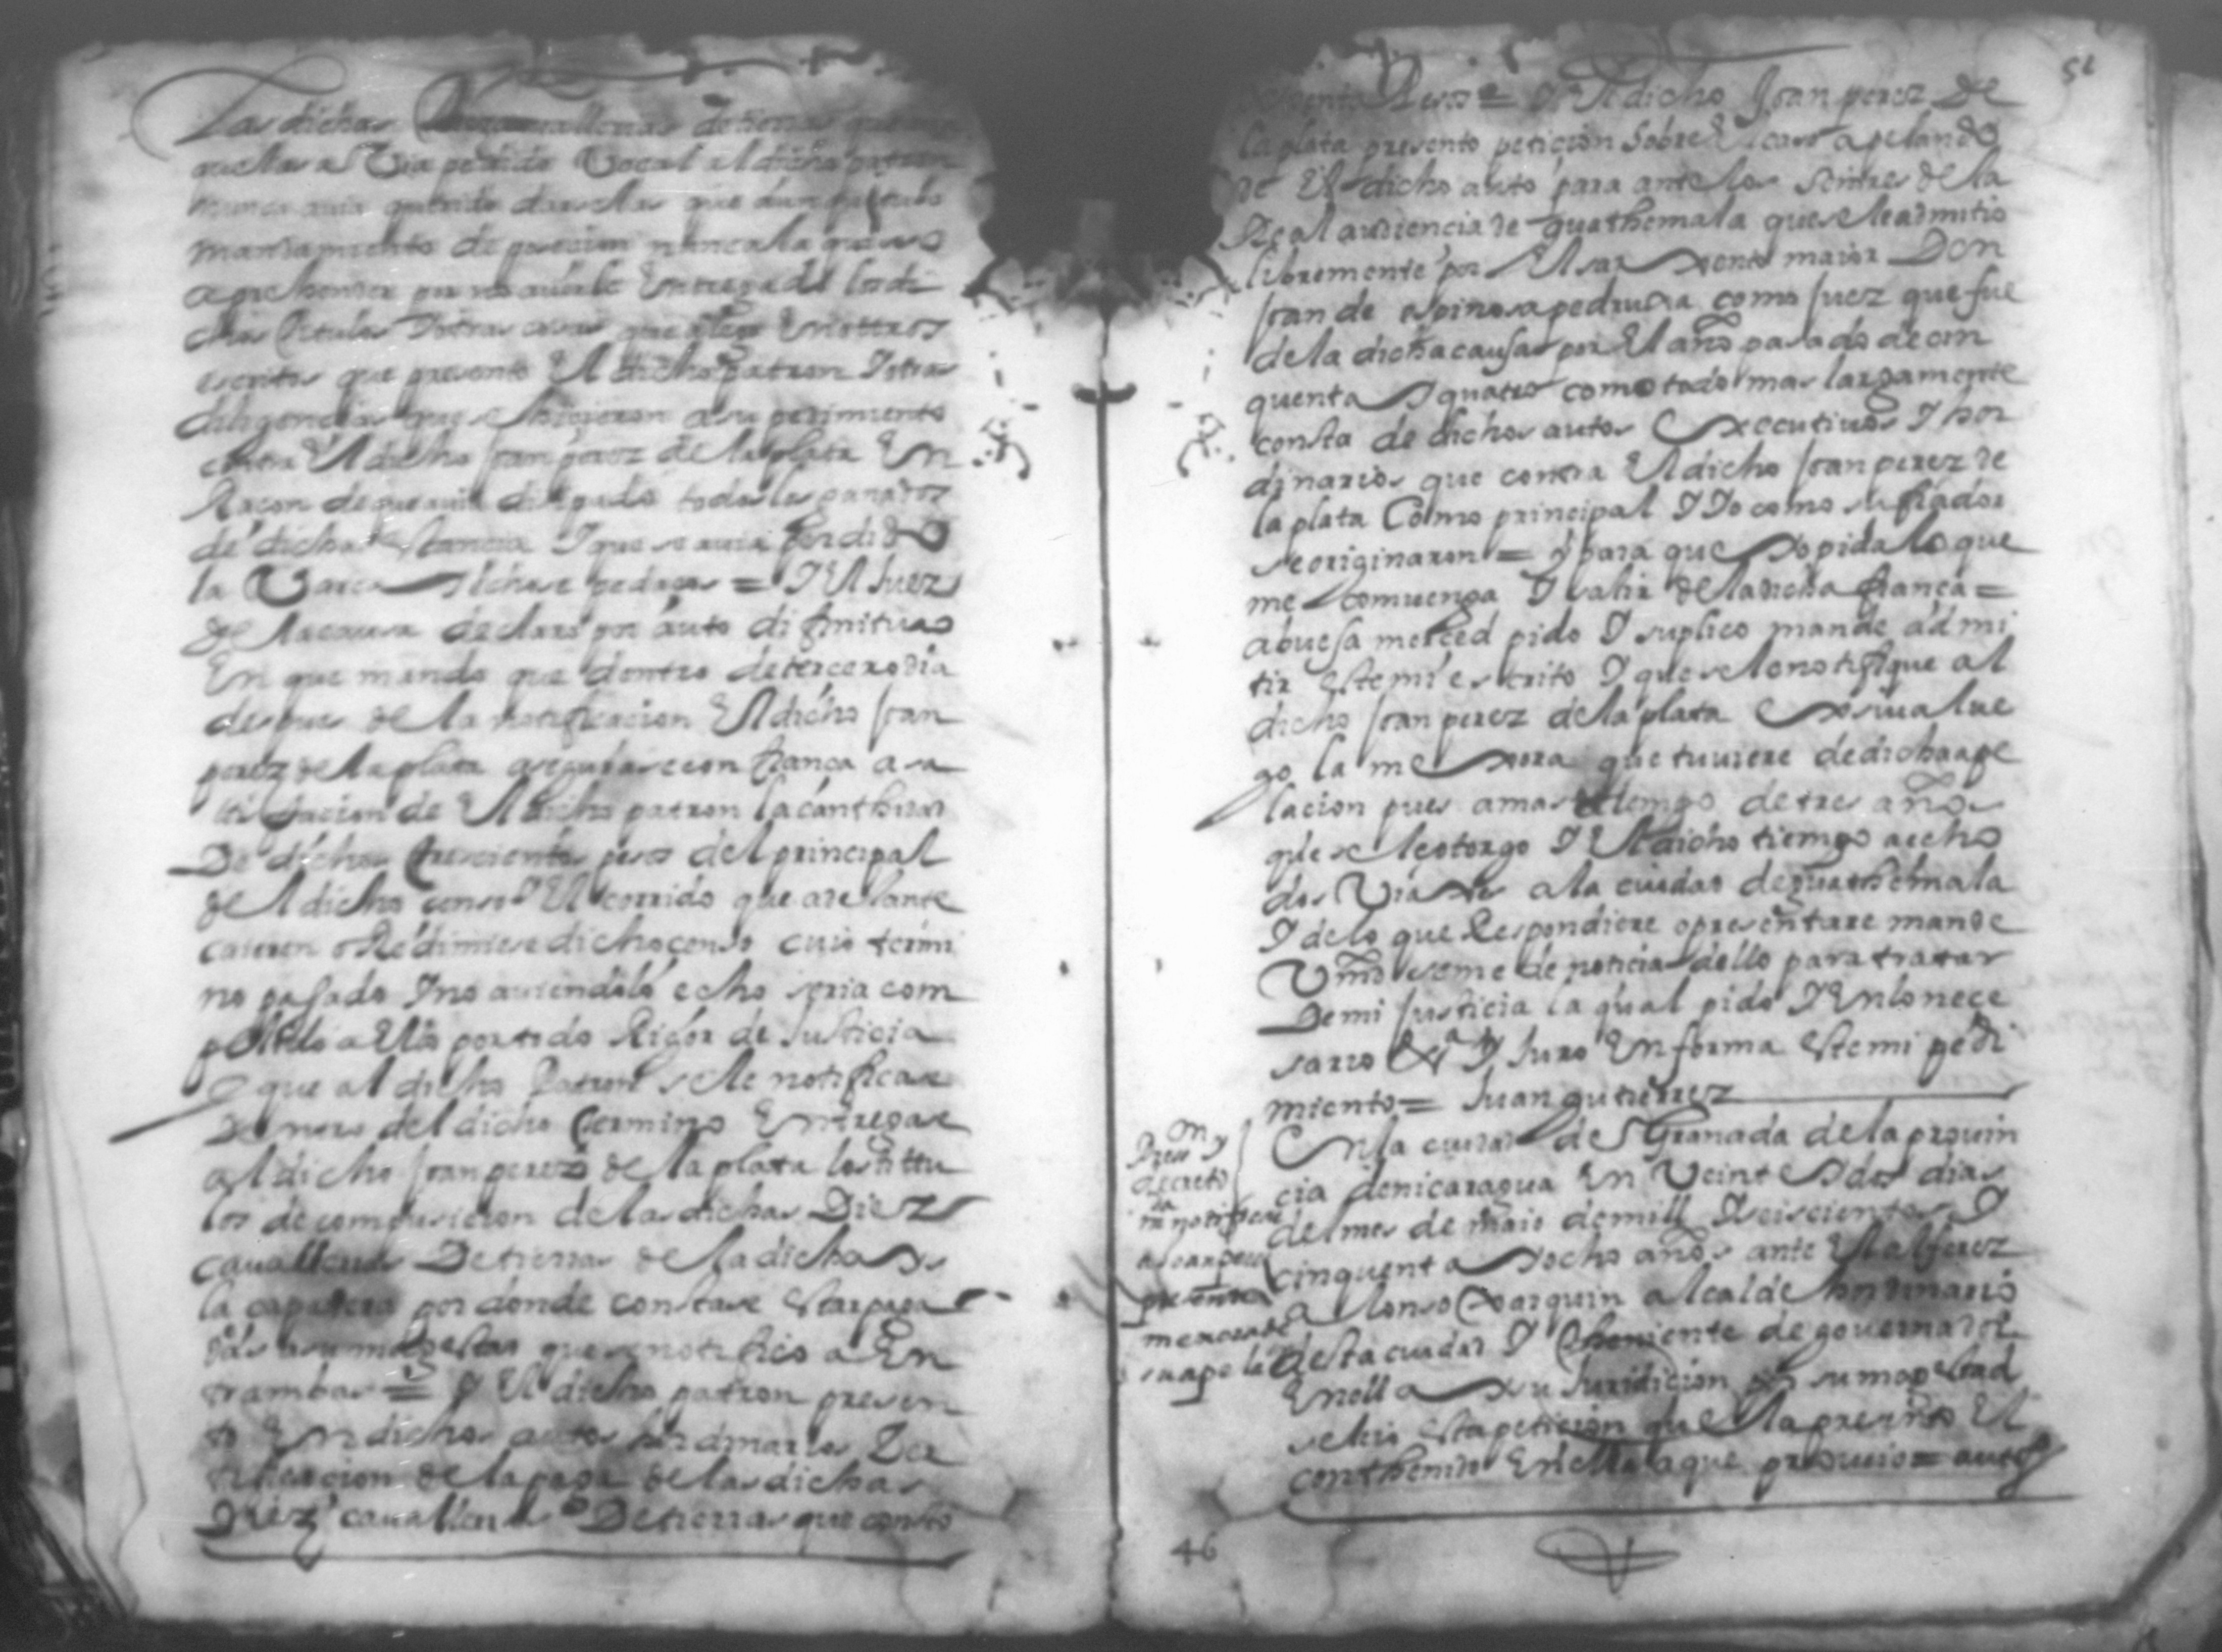 Las dichas cauallerias de tierras que
auia pedido Vocal al dicho patron
nunca auia querido darselas que aun
mandamiento de posecion nunca la quiso
aprehender por no auerle Entregado los di
chos titulos Y otras cosas que alego En otros
escritos que presento El dicho patron Y otras
diligencias que se hicieron a su pedimiento
contra El dicho Joan perez de la plata En
Raçon de que auia disipado todos los ganados
de dicha estancia Y que se auia perdido
la Varca = Y El Juez
de la causa declaro por auto difinitiuo
En que mando que dentro de tercero dia
despues de la notificacion El dicho Joan
perez de la plata asegurase con fiança a sa
tisfacion de El dicho patron la canthidad
De dichos trescientos pesos del principal
de El dicho censo Y El corrido que adelante
caieren o Redimiese dicho censo cuio termi
no pasado Y no auiendolo echo seria com
pelido a Ello por todo Rigor de Justicia
Y que al dicho Patron se le notificase
Dentro del dicho termino Entregase
al dicho Joan perez de la plata los titu
los de composicion de las dichas Diez
cauallerias De tierras de la dicha
la capatera por donde constase Estar paga
das a su magestad que se notifico a En
trambos = Y El dicho patron presen
to En dichos autos hordinarios Cer
tificacion de la paga de las dichas
Diez cauallerias De tierras que consto
51
pesos = Y El dicho Joan perez De
la plata presento peticion sobre El caso apelando
de El dicho auto para ante los señores de la
Real audiencia de guathemala que se le admitio
libremente por El sarxento maior Don
Joan de espinosa pedruxa como Juez que fue
de la dicha causa por El año pasado de cin
quenta Y quatro como todo mas largamente
consta de dichos autos Executiuos Y hor
dinarios que contra El dicho Joan perez de
la plata Como principal Y Yo como su fiador
se originaron = Y para que Yo pida lo que
me combenga Y salir de la dicha fiança =
a buesa merced pido Y suplico mande admi
tir Este mi escrito Y que se le notifique al
dicho Joan perez de la plata Exsiua lue
go la mexora que tuuiere de dicha ape
lacion pues a mas tiempo de tres años
que se le otorgo Y El dicho tiempo a echo
dos Viaxes a la ciudad de guathemala
Y de lo que Respondiere o presentare mande
Vmd se me de noticia dello para tratar
De mi Justicia la qual pido Y En lo nece
sario &ª Y Juro En forma Este mi pedi
miento = Juan gutierrez
Presº Y
decreto
notifique
a Joan perez
presente la
mexora de
su apelaº
En la ciudad de Granada de la prouin
cia de nicaragua En Veinte Y dos dias
del mes de maio de mill Y seiscientos Y
cinquenta Y ocho años ante El alferez
alonso Xoarquin alcalde hordinario
desta ciudad Y theniente de gouernador
En ella Y su Juridicion por su magestad
se leio Esta peticion que la presento El
conthenido En ella la que proueio = auto
46